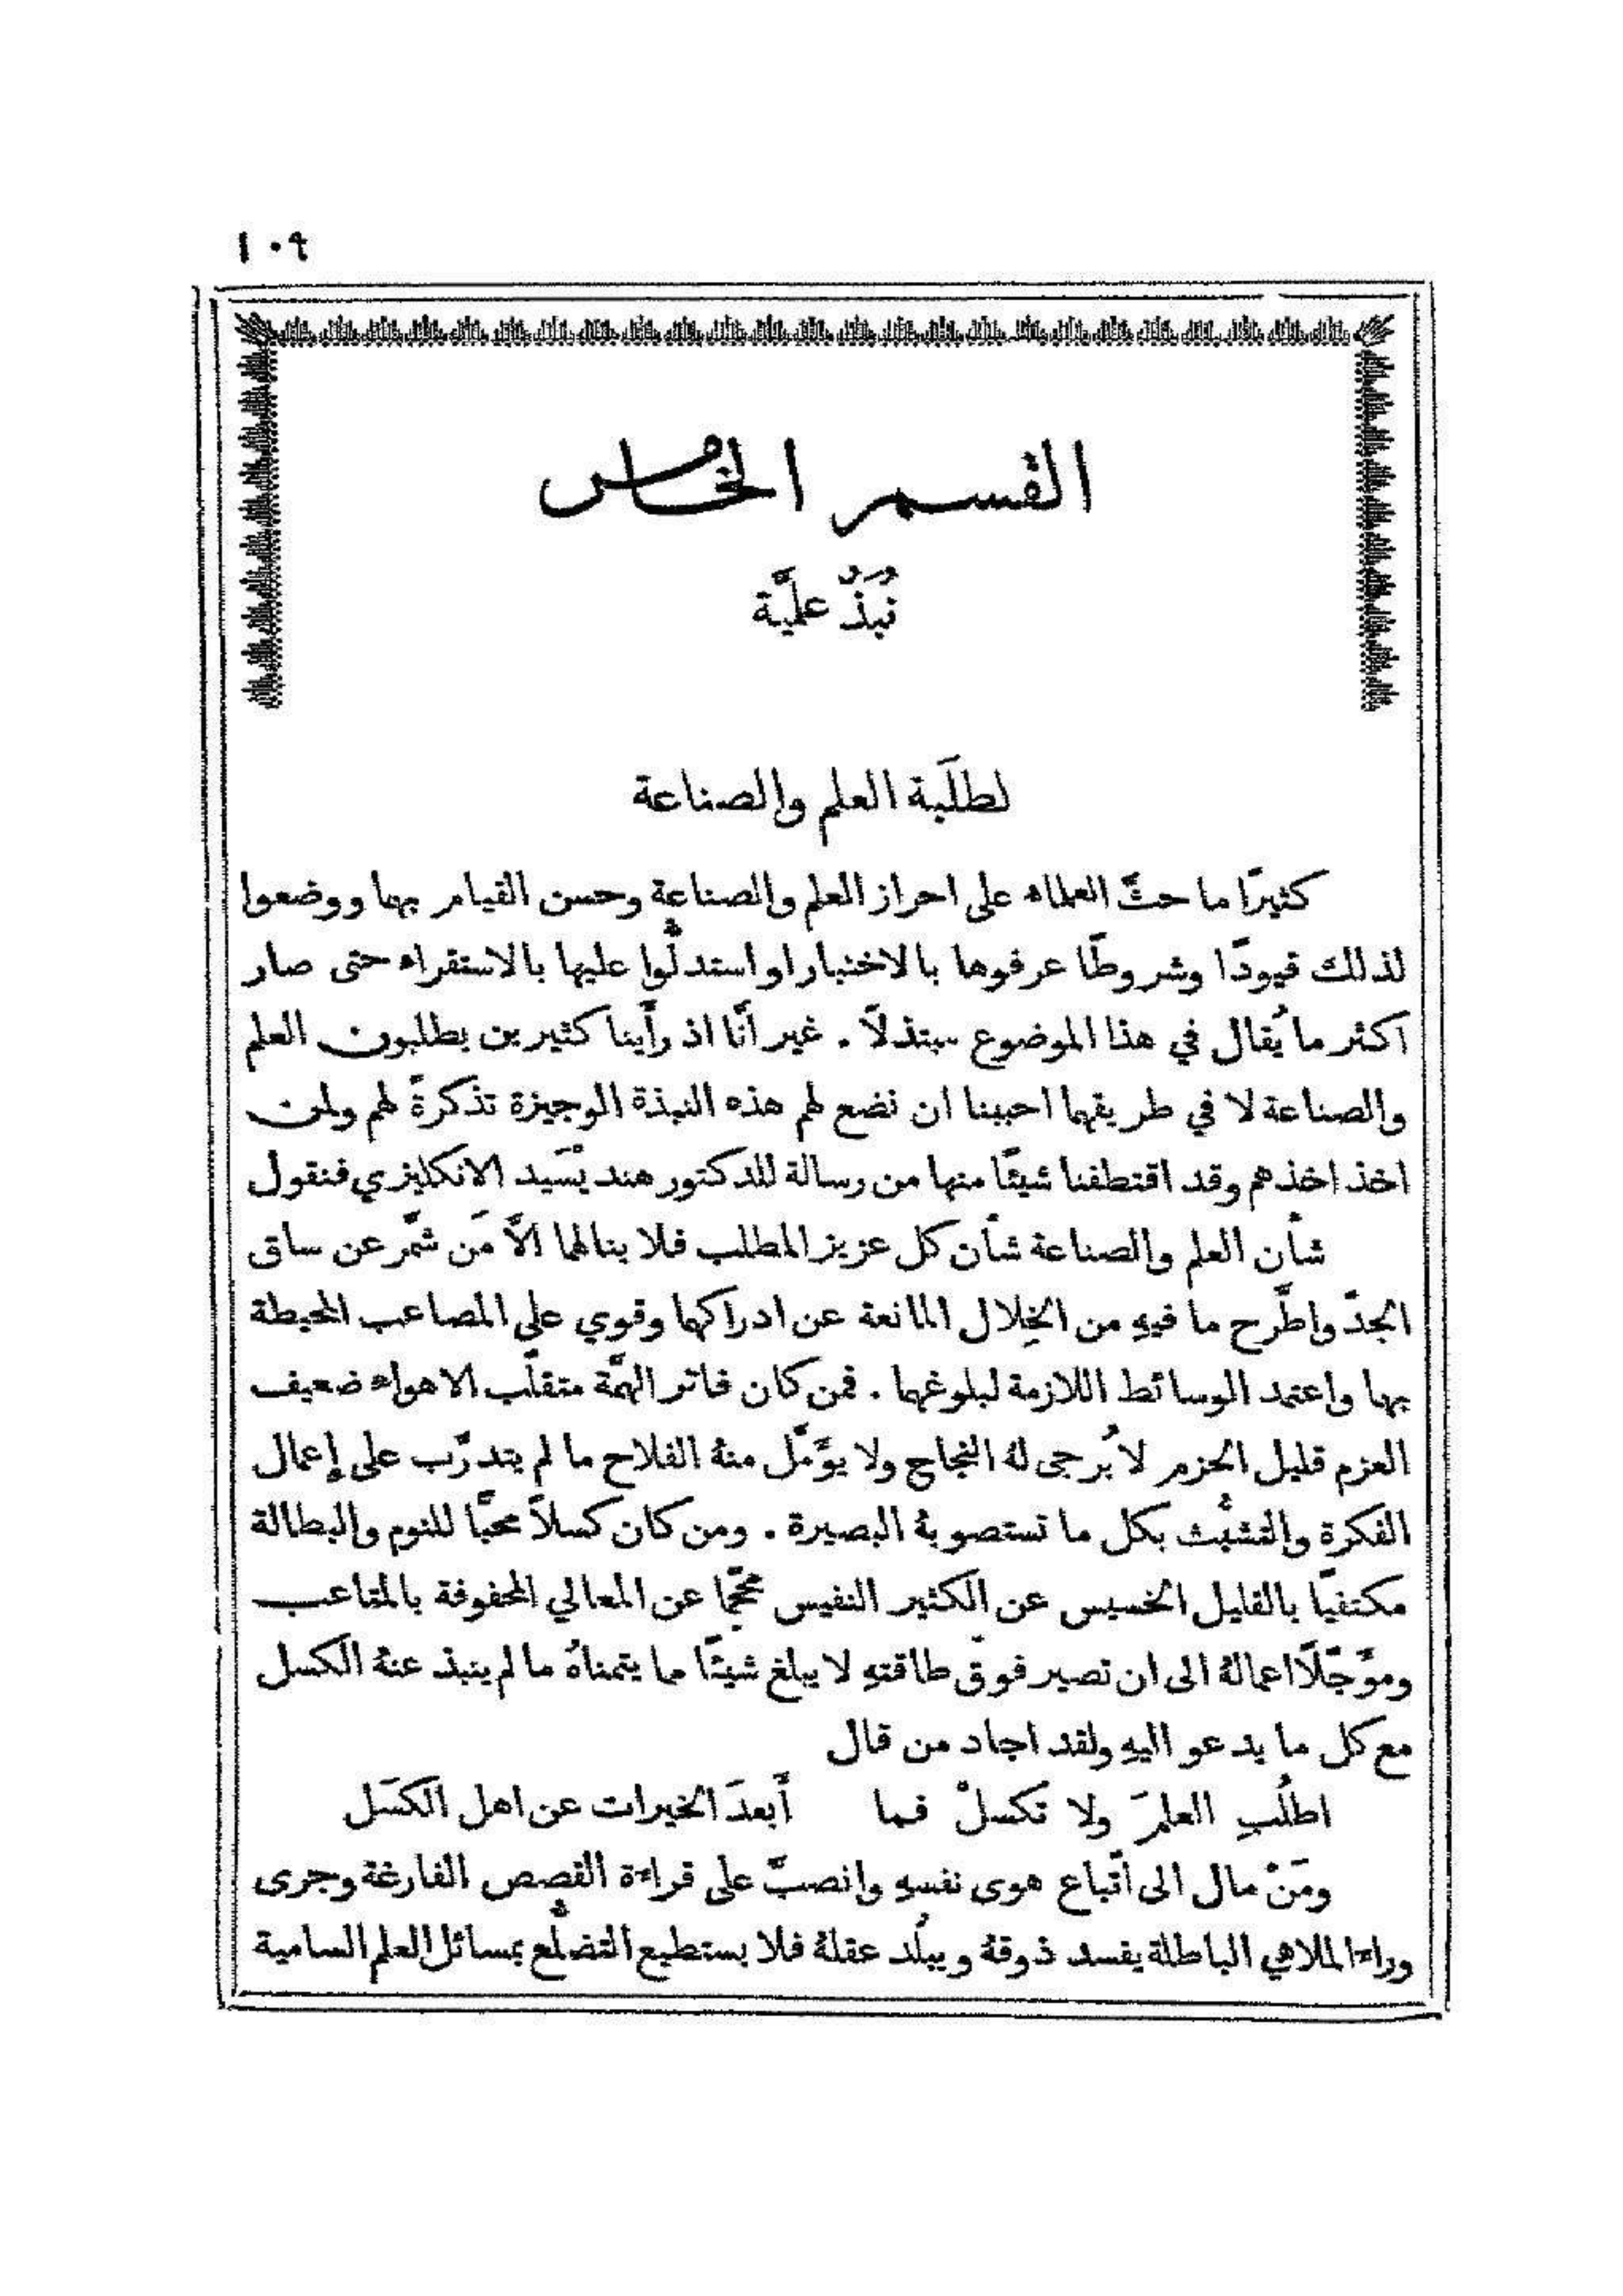 ١٠٩
القسم الخامس
نُبَذٌ علميَّة
لطلَبة العلم والصناعة
كثيرًا ما حثَّ العلماء على احراز العلم والصناعة وحسن القيام بهما ووضعوا
لذلك قيودًا وشروطًا عرفوها بالاختبار او استدلُّوا عليها بالاستقراء حتى صار
اكثر ما يُقال في هذا الموضوع مبتذلاً . غير أنَّا اذ رأَينا كثيرين يطلبون العلم
والصناعة لا في طريقهما احببنا ان نضع لهم هذه النبذة الوجيزة تذكرةً لهم ولمن
اخذ اخذهم وقد اقتطفنا شيئًا منها من رسالة للدكتور هند يْسَيد الانكليزي فنقول
شأْن العلم والصناعة شأْن كل عزيز المطلب فلا ينالهما الاَّ مَن شمَّر عن ساق
الجدّ واطَّرح ما فيهِ من الخِلال المانعة عن ادراكهما وقوي على المصاعب المحيطة
بهما واعتمد الوسائط اللازمة لبلوغهما . فمن كان فاتر الهمَّة متقلّب الاهواء ضعيف
العزم قليل الحزم لا يُرجى لهُ النجاح ولا يؤَمَّل منهُ الفلاح ما لم يتدرَّب على إعمال
الفكرة والتشبُّث بكل ما تستصوبهُ البصيرة . ومن كان كسلاً محبًّا للنوم والبطالة
مكتفيًا بالقليل الخسيس عن الكثير النفيس محجمًا عن المعالي المحفوفة بالمتاعب
ومؤَجّلًا اعمالهُ الى ان تصير فوق طاقتهِ لا يبلغ شيئًا مما يتمناهُ ما لم ينبذ عنهُ الكسل
مع كل ما يدعو اليهِ ولقد اجاد من قال
اطلُبِ العلمَ ولا تكسلْ فما أَبعدَ الخيرات عن اهل الكسَل
ومَنْ مال الى اتّباع هوى نفسهِ وانصبَّ على قراءة القصص الفارغة وجرى
وراء الملاهي الباطلة يفسد ذوقهُ ويبلُد عقلهُ فلا يستطيع التضلُّع بمسائل العلم السامية